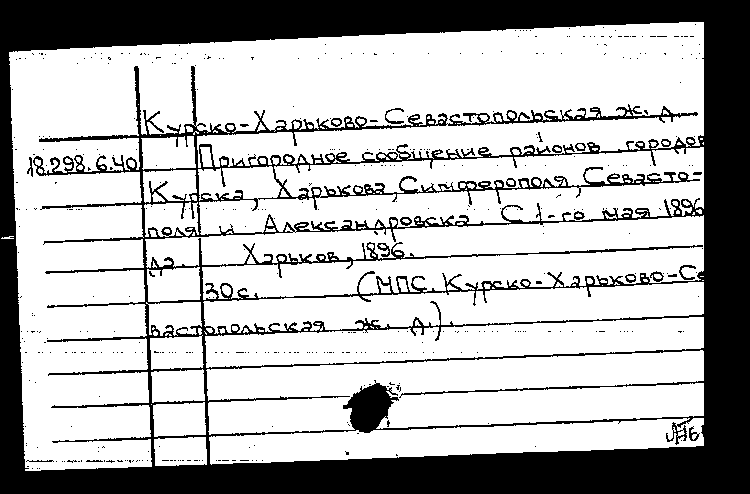 Курско-Харьково-Севастопольская ж. д.
18.298.6.40 Пригородное сообщение районов городов
Курска, Харькова, Симферополя, Севасто-
поля и Александровска. С 1-го мая 1896
да. Харьков, 1896.
30с. (МПС. Курско-Харьково-Се
вастопольская ж. д.).